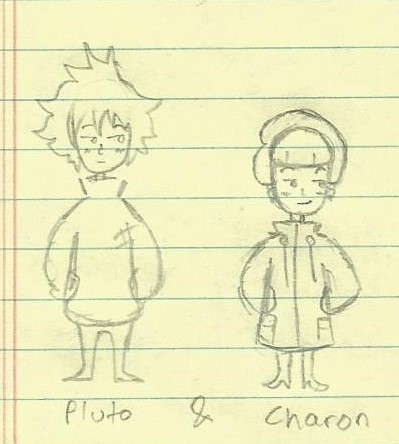 Pluto & Charon